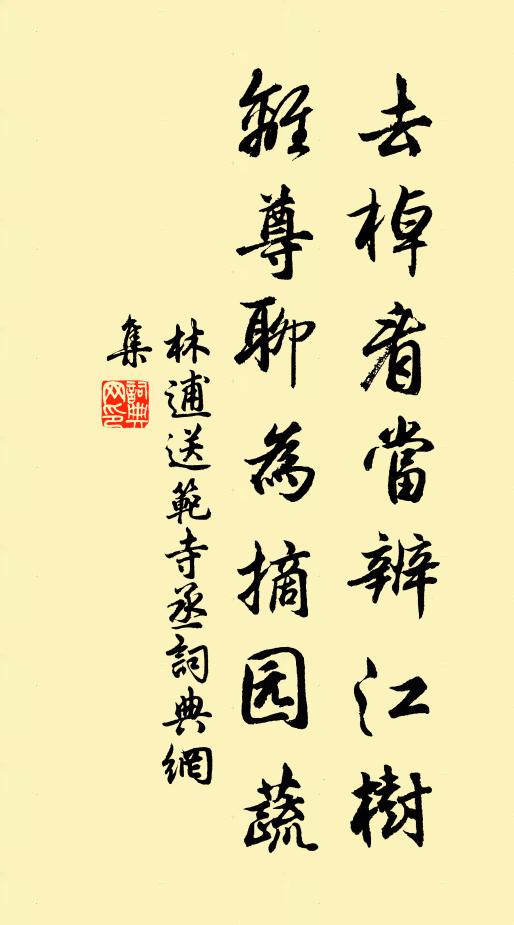 去棹看當辨江樹
離尊聊為摘园蔬
林逋送範寺丞詞典網
集
詞典
网印